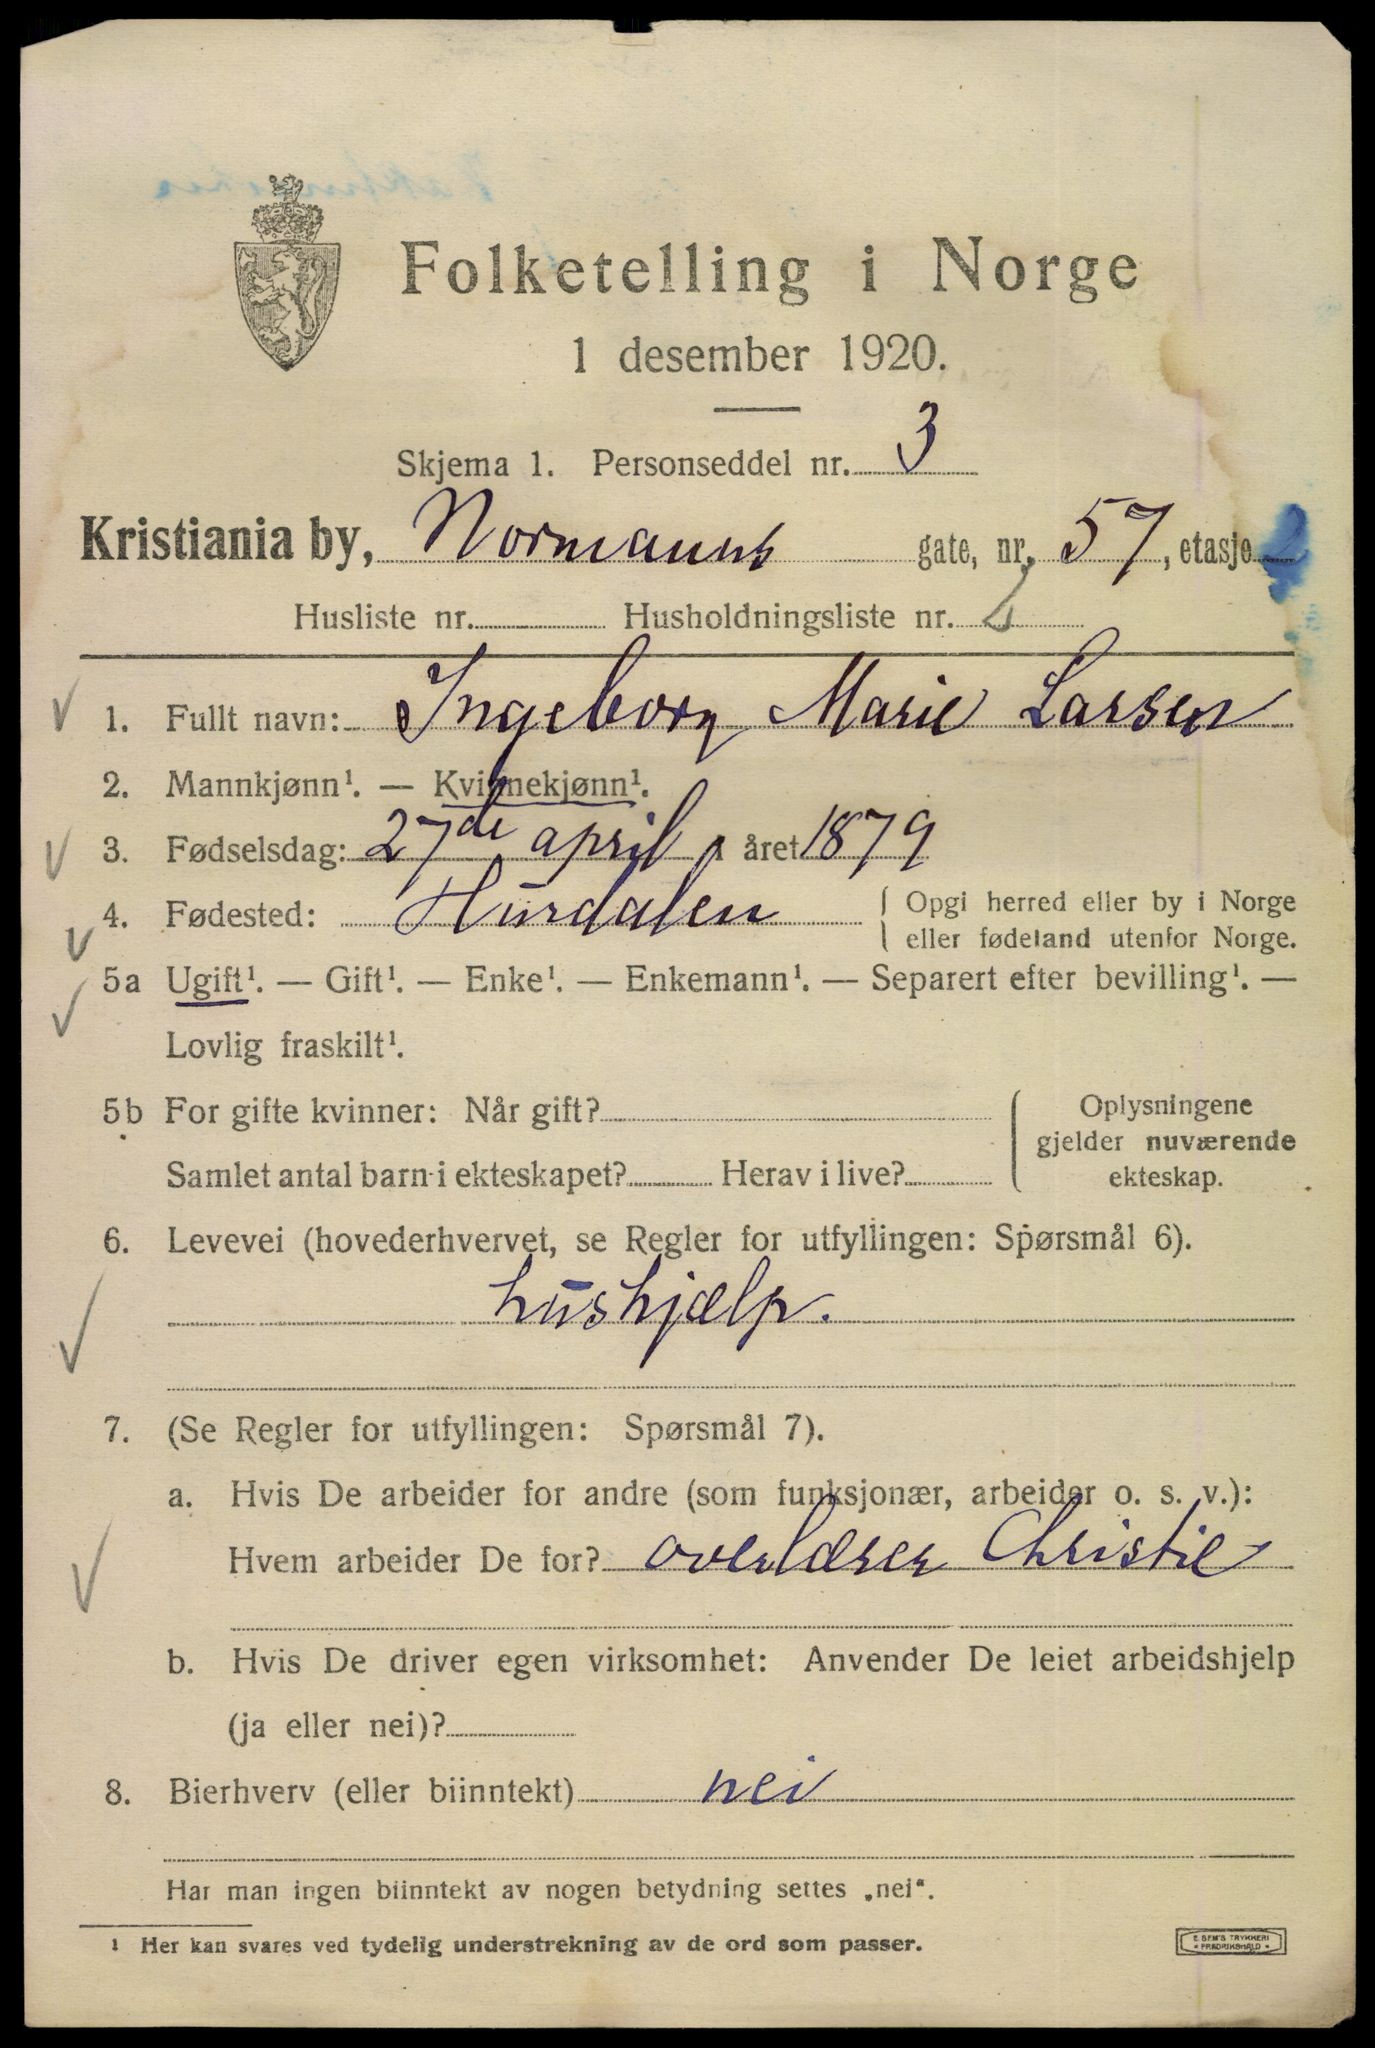 Folketelling i Norge
1 desember 1920.
Skjema 1. Personseddel nr. 3
Kristiania by, Normanns gate, nr. 57, etasje 2
Husliste nr. Husholdningsliste nr.
1. Fullt navn: Ingeborg Marie Larsen
2. Mannkjønn¹. — Kvinnekjønn¹.
3. Fødselsdag: 27de april i året 1879
4. Fødested: Hurdalen { Opgi herred eller by i Norge
eller fødeland utenfor Norge.
5a Ugift¹. — Gift¹. — Enke¹. — Enkemann¹. — Separert efter bevilling¹. —
Lovlig fraskilt¹.
5b For gifte kvinner: Når gift? Oplysningene
gjelder nuværende
Samlet antal barn i ekteskapet? Herav i live? ekteskap.
6. Levevei (hovederhvervet, se Regler for utfyllingen: Spørsmål 6).
hushjælp.
7. (Se Regler for utfyllingen: Spørsmål 7).
a. Hvis De arbeider for andre (som funksjonær, arbeider o. s. v.):
Hvem arbeider De for? overlærer Christie
b. Hvis De driver egen virksomhet: Anvender De leiet arbeidshjelp
(ja eller nei)?
8. Bierhverv (eller biinntekt) nei
Har man ingen biinntekt av nogen betydning settes „nei“.
¹ Her kan svares ved tydelig understrekning av de ord som passer.
E SEM'S TRYKKERI
• FREDRIKSHALD •